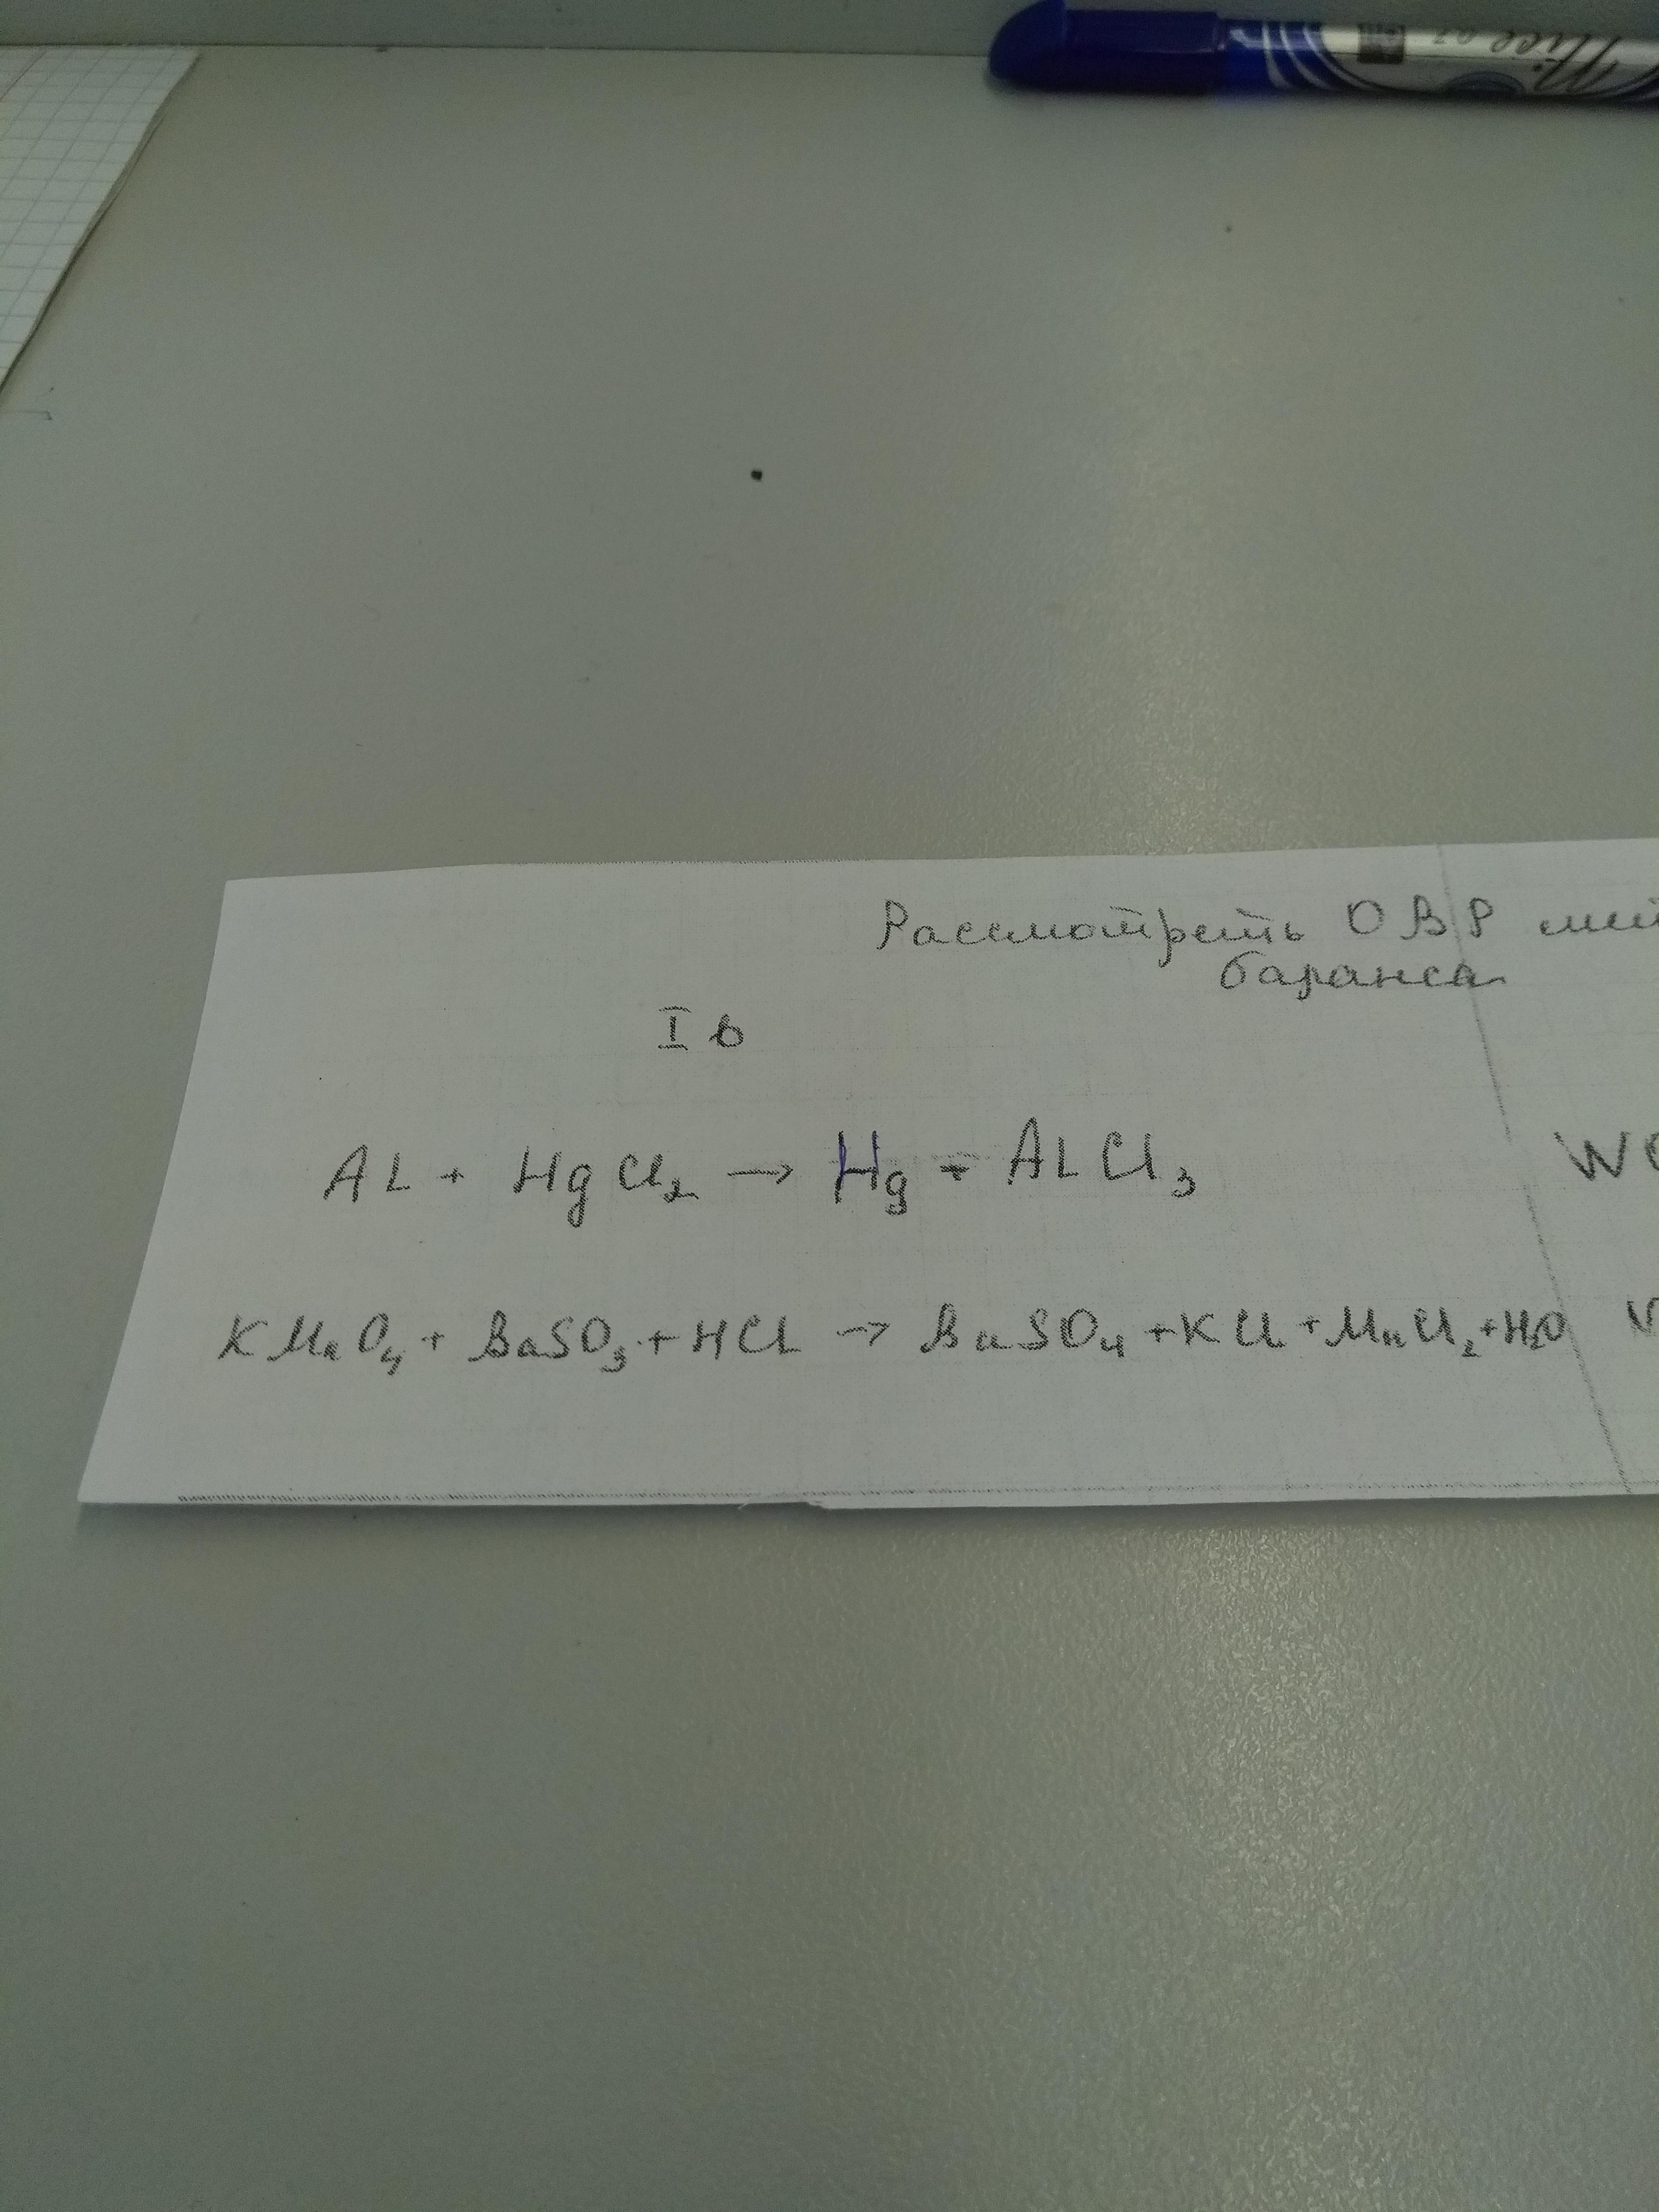 Рассмотреть ОВР
баланса
I в
Al + HgCl₂ → Hg + AlCl₃
KMnO₄ + BaSO₃ + HCl → BaSO₄ + KCl + MnCl₂ + H₂O